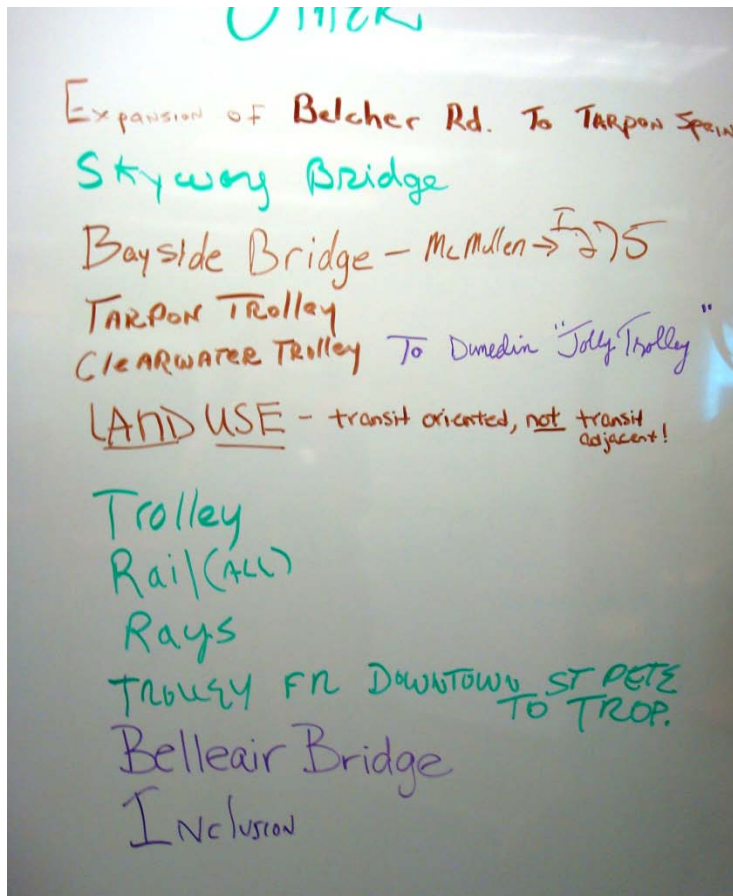 Other
Expansion of Belcher Rd. To TARPON Sprin
Skyway Bridge
Bayside Bridge - McMullen → I 275
TARPON TRolley
CleARWATER TRolley To Dunedin "Jolly Trolley"
LAND USE - transit oriented, not transit
adjacent!
Trolley
Rail (ALL)
Rays
TROLLEY FR DOWNTOWN ST PETE
TO TROP.
Belleair Bridge
Inclusion